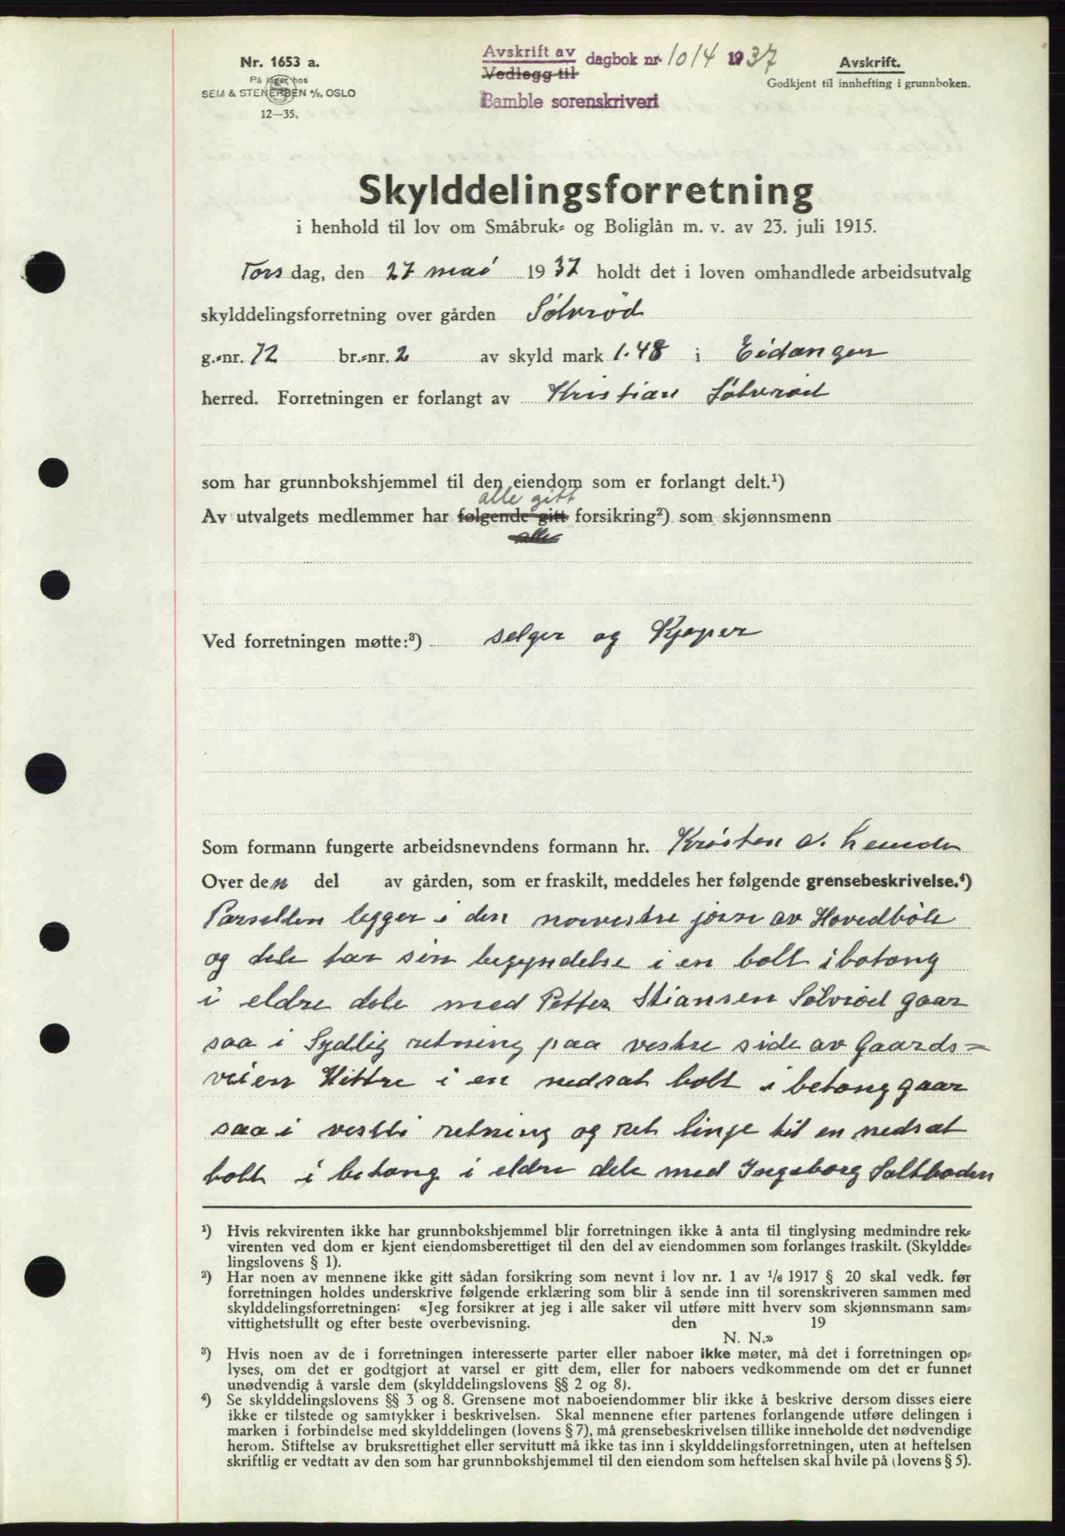 Nr. 1653 a.
På lager hos
SEM & STENERSEN A/S, OSLO
12—35.
Avskrift av
Vedlegg til
dagbok nr 1014 1937
Bamble sorenskriveri
Avskrift.
Godkjent til innhefting i grunnboken.
Skylddelingsforretning
i henhold til lov om Småbruk- og Boliglån m. v. av 23. juli 1915.
Tors dag, den 27 mai 1937 holdt det i loven omhandlede arbeidsutvalg
skylddelingsforretning over gården Sølvrød
g.-nr. 72 br.-nr. 2 av skyld mark 1.48 i Eidanger
herred. Forretningen er forlangt av Kristian Sølvrød
som har grunnbokshjemmel til den eiendom som er forlangt delt.¹)
alle gitt
Av utvalgets medlemmer har følgende gitt forsikring²) som skjønnsmenn
alle
Ved forretningen møtte:³) selger og Kjøper
Som formann fungerte arbeidsnevndens formann hr. Kristen A.
Over den del av gården, som er fraskilt, meddeles her følgende grensebeskrivelse.⁴)
Parsellen legger i den norvestre jørne av Hovedbøle
og dele tar sin begyndelse i en bolt i botong
i eldre dele med Petter Stiansen Sølvrød gaar
saa i Sydlig retning paa vestre side av Gaards=
veien Hittre i en nedsat bolt i betong gaar
saa i vestli retning og ret linje til en nedsat
bolt i betong i eldre dele med Ingeborg Saltboden
¹) Hvis rekvirenten ikke har grunnbokshjemmel blir forretningen ikke å anta til tinglysing medmindre rek-
virenten ved dom er kjent eiendomsberettiget til den del av eiendommen som forlanges fraskilt. (Skyldde-
lingslovens § 1).
²) Har noen av mennene ikke gitt sådan forsikring som nevnt i lov nr. 1 av 1/6 1917 § 20 skal vedk. før
forretningen holdes underskrive følgende erklæring som blir å sende inn til sorenskriveren sammen med
skylddelingsforretningen: «Jeg forsikrer at jeg i alle saker vil utføre mitt hverv som skjønnsmann sam-
vittighetsfullt og efter beste overbevisning. den 19
N. N.»
³) Hvis noen av de i forretningen interesserte parter eller naboer ikke møter, må det i forretningen op-
lyses, om det er godtgjort at varsel er gitt dem, eller for naboers vedkommende om det er funnet
unødvendig å varsle dem (skylddelingslovens §§ 2 og 8).
⁴) Se skylddelingslovens §§ 3 og 8. Grensene mot naboeiendommer blir ikke å beskrive dersom disses eiere
ikke er tilstede og samtykker i beskrivelsen. Skal mennene efter partenes forlangende utføre delingen i
marken i forbindelse med skylddelingen (lovens § 7), må grensebeskrivelsen tillike inneholde det nødvendige
herom. Stiftelse av bruksrettighet eller servitutt må ikke tas inn i skylddelingsforretningen, uten at heftelsen
skriftlig er vedtatt av den som har grunnbokshjemmel til den eiendom som heftelsen skal hvile på (lovens § 5).